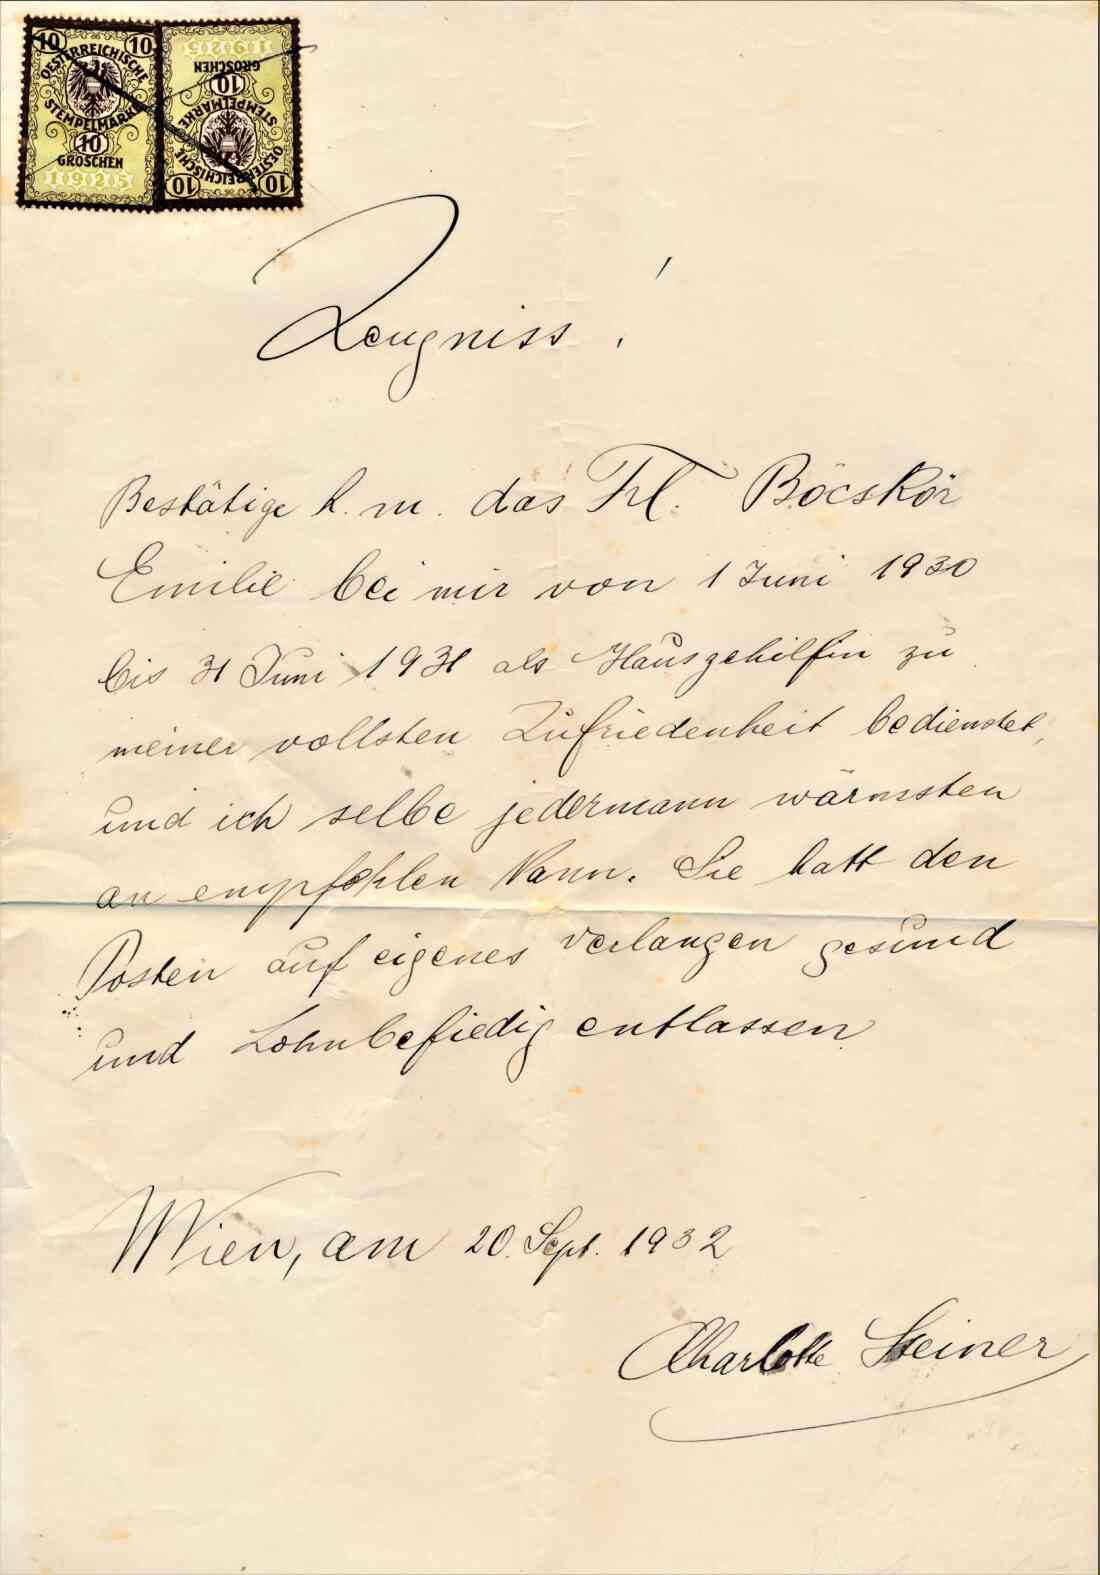 10 10
OESTERREICHISCHE
STEMPELMARKE
10
GROSCHEN
1925
10 10
OESTERREICHISCHE
STEMPELMARKE
10
GROSCHEN
1925
Zeugniss!
Bestätige h.m. das Frl. Böcskör
Emilie bei mir von 1 Juni 1930
bis 31 Juni 1931 als Hausgehilfin zu
meiner vollsten Zufriedenheit bedienstet,
und ich selbe jedermann wärmsten
an empfohlen kann. Sie hatt den
Posten auf eigenes verlangen gesund
und Lohnbefiedig entlassen
Wien, am 20. Sept. 1932
Charlotte Steiner